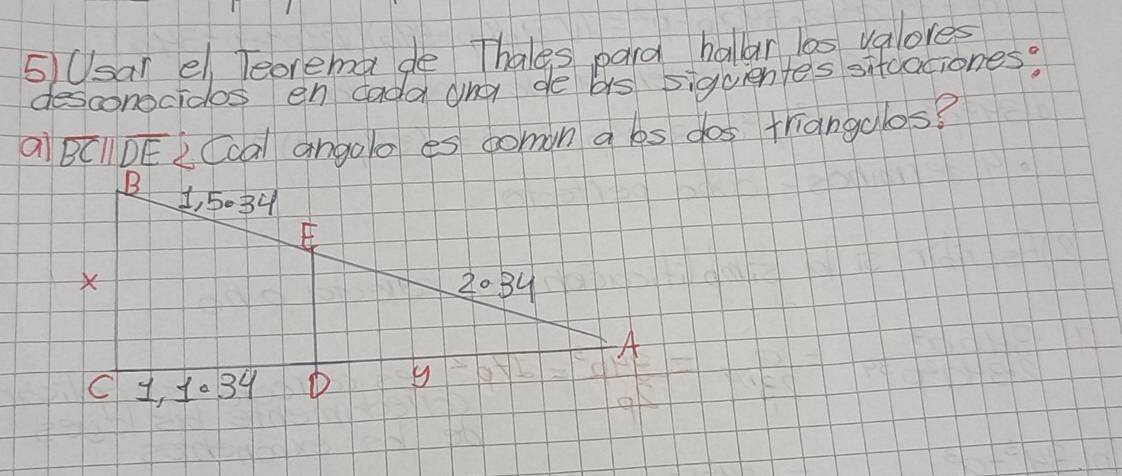 5) Usar el Teorema de Thales para hallar los valores
desconocidos en cada una de los siguientes situaciones:
a) BC || DE ¿Cual angulo es comun a los dos triangulos?
B
1,5·34
E
x
2·34
A
C 1,1·34 D y